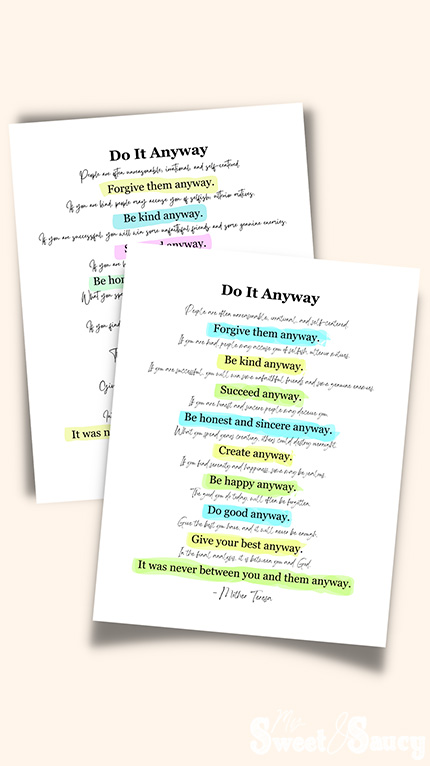 Do It Anyway
People are often unreasonable, irrational, and self-centered.
Forgive them anyway.
If you are kind, people may accuse you of selfish, ulterior motives.
Be kind anyway.
If you are successful, you will win some unfaithful friends and some genuine enemies.
S anyway.
If you are
Be hon
What you sp
If you find
Th
Giv
It was n
Do It Anyway
People are often unreasonable, irrational, and self-centered.
Forgive them anyway.
If you are kind, people may accuse you of selfish, ulterior motives.
Be kind anyway.
If you are successful, you will win some unfaithful friends and some genuine enemies.
Succeed anyway.
If you are honest and sincere people may deceive you.
Be honest and sincere anyway.
What you spend years creating, others could destroy overnight.
Create anyway.
If you find serenity and happiness, some may be jealous.
Be happy anyway.
The good you do today, will often be forgotten.
Do good anyway.
Give the best you have, and it will never be enough.
Give your best anyway.
In the final analysis, it is between you and God.
It was never between you and them anyway.
- Mother Teresa
Mrs.
Sweet & Saucy